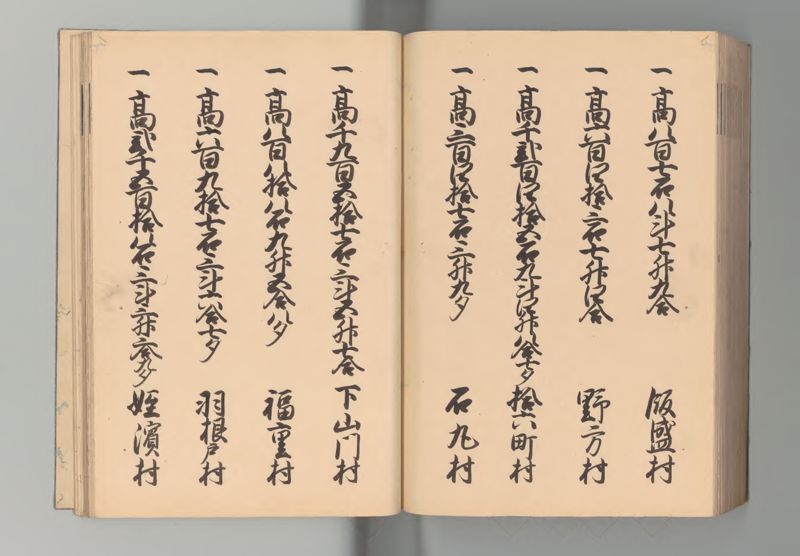 一高八百七石八斗七升九合 飯盛村
一高六百四拾三石七升四合 野方村
一高千弐百四拾六石九斗四升八合七夕 拾六町村
一高三百四拾七石三升九夕 石丸村
一高千九百五拾七石三斗五升七合 下山門村
一高八百八拾八石九升五合八夕 福重村
一高六百九拾七石三斗六合七夕 羽根戸村
一高弐千五百拾八石三斗三升六合九夕 姪濱村